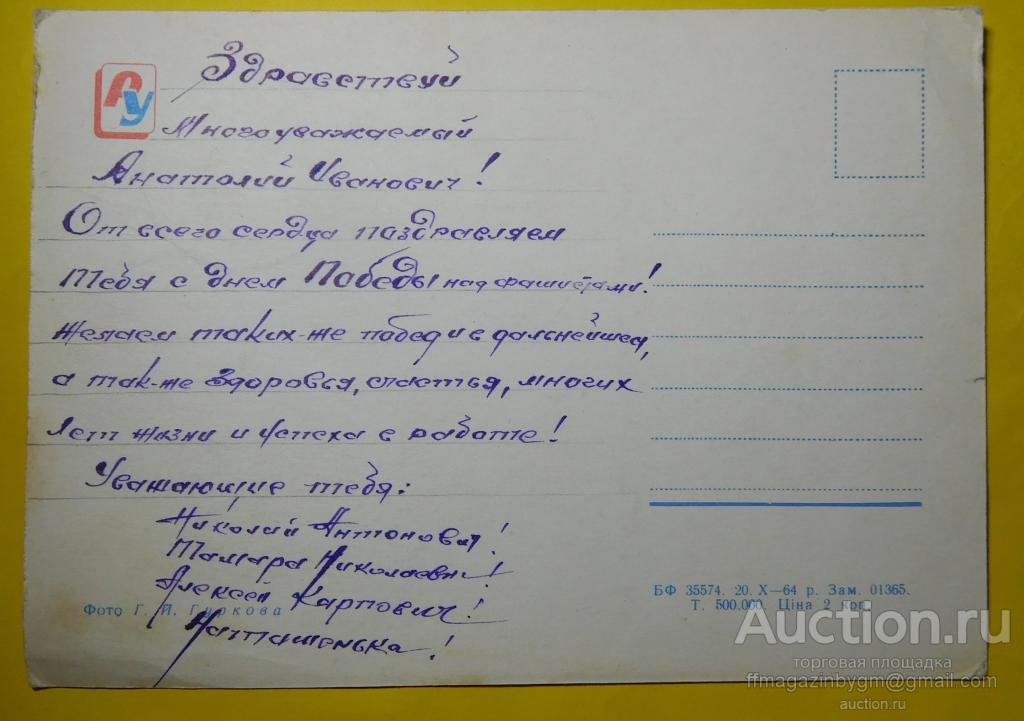 РУ
Здравствуй
Многоуважаемый
Анатолий Иванович!
От всего сердца поздравляем
тебя с днем Победы над фашистами!
Желаем таких-же побед и в дальнейшем,
а так-же здоровья, счастья, многих
лет жизни и успеха в работе!
Уважающие тебя:
Николай Антонович!
Тамара Николаевна!
Алексей Карпович!
Наташенька!
Фото Г. Й. Гиркова
БФ 35574. 20. X—64 р. Зам. 01365.
Т. 500.000. Ціна 2 коп.
Auction.ru
торговая площадка
ffmagazinbygm@gmail.com
auction.ru